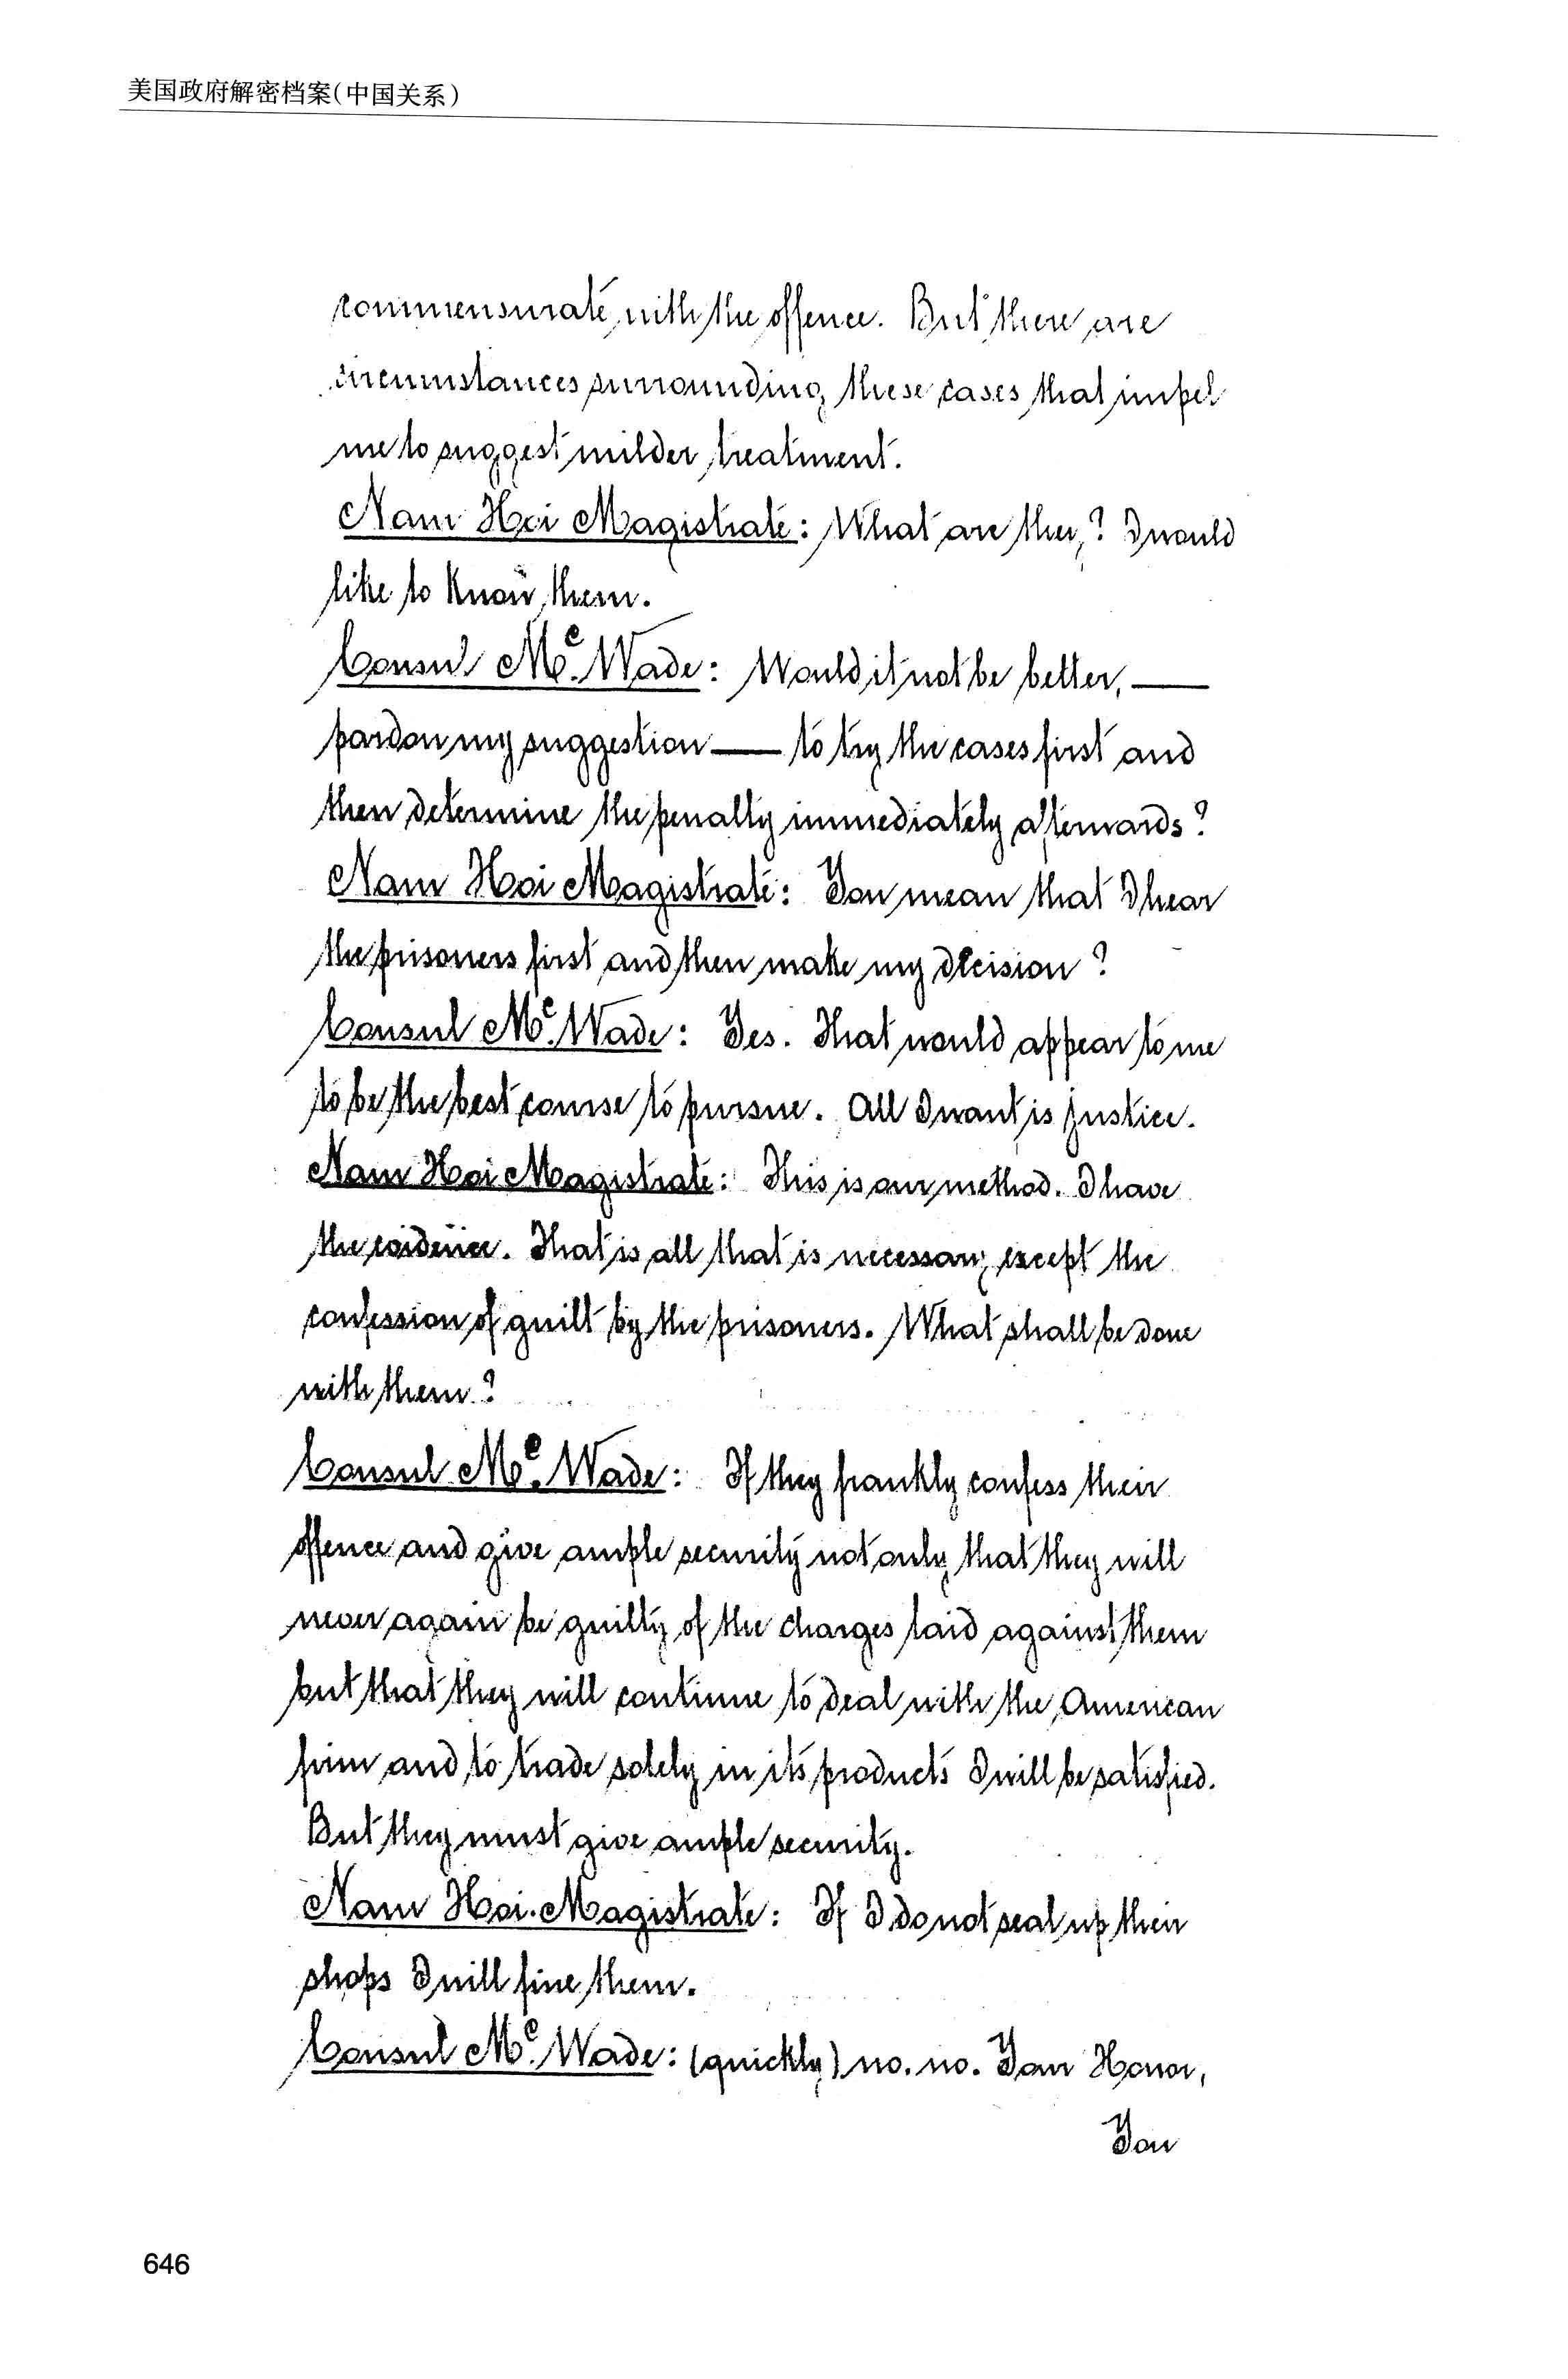 美国政府解密档案(中国关系)
commensurate with the offence. But there are
circumstances surrounding these cases that impel
me to suggest milder treatment.
Nam Hoi Magistrate: What are they? I would
like to know them.
Consul McWade: Would it not be better, —
pardon my suggestion — to try the cases first and
then determine the penalty immediately afterwards?
Nam Hoi Magistrate: You mean that I hear
the prisoners first and then make my decision?
Consul McWade: Yes. That would appear to me
to be the best course to pursue. All I want is justice.
Nam Hoi Magistrate: This is our method. I have
the evidence. That is all that is necessary except the
confession of guilt by the prisoners. What shall be done
with them?
Consul McWade: If they frankly confess their
offence and give ample security not only that they will
never again be guilty of the charges laid against them
but that they will continue to deal with the American
firm and to trade solely in its products I will be satisfied.
But they must give ample security.
Nam Hoi Magistrate: If I do not seal up their
shops I will fine them.
Consul McWade: (quickly) no. no. Your Honor,
You
646